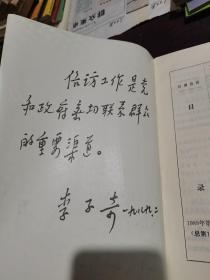 信访工作是党
和政府密切联系群众
的重要渠道。
李子奇 一九八九、二
目
录
1989年第
(总第1